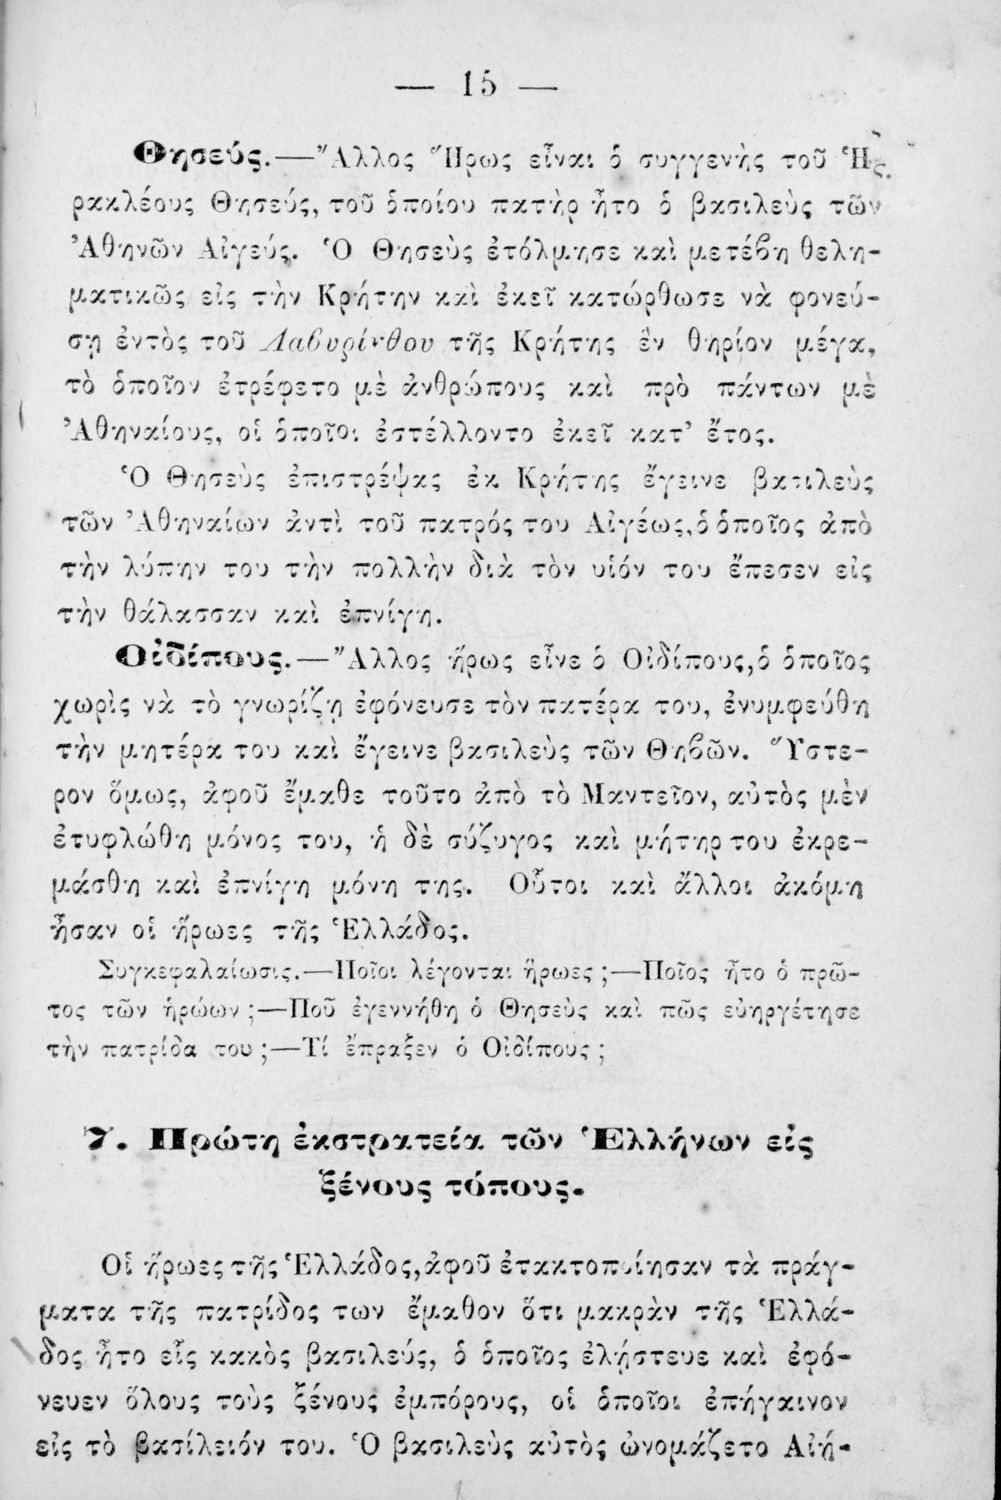 — 15 —
Θησεύς.—Ἄλλος Ἥρως εἶναι ὁ συγγενὴς τοῦ Ἡ-
ρακλέους Θησεύς, τοῦ ὁποίου πατὴρ ἦτο ὁ βασιλεὺς τῶν
Ἀθηνῶν Αἰγεύς. Ὁ Θησεὺς ἐτόλμησε καὶ μετέβη θελη-
ματικῶς εἰς τὴν Κρήτην καὶ ἐκεῖ κατώρθωσε νὰ φονεύ-
σῃ ἐντὸς τοῦ Λαβυρίνθου τῆς Κρήτης ἓν θηρίον μέγα,
τὸ ὁποῖον ἐτρέφετο μὲ ἀνθρώπους καὶ πρὸ πάντων μὲ
Ἀθηναίους, οἱ ὁποῖοι ἐστέλλοντο ἐκεῖ κατ' ἔτος.
Ὁ Θησεὺς ἐπιστρέψας ἐκ Κρήτης ἔγεινε βασιλεὺς
τῶν Ἀθηναίων ἀντὶ τοῦ πατρός του Αἰγέως, ὁ ὁποῖος ἀπὸ
τὴν λύπην του τὴν πολλὴν διὰ τὸν υἱόν του ἔπεσεν εἰς
τὴν θάλασσαν καὶ ἐπνίγη.
Οἰδίπους.—Ἄλλος ἥρως εἶνε ὁ Οἰδίπους, ὁ ὁποῖος
χωρὶς νὰ τὸ γνωρίζῃ ἐφόνευσε τὸν πατέρα του, ἐνυμφεύθη
τὴν μητέρα του καὶ ἔγεινε βασιλεὺς τῶν Θηβῶν. Ὕστε-
ρον ὅμως, ἀφοῦ ἔμαθε τοῦτο ἀπὸ τὸ Μαντεῖον, αὐτὸς μὲν
ἐτυφλώθη μόνος του, ἡ δὲ σύζυγος καὶ μήτηρ του ἐκρε-
μάσθη καὶ ἐπνίγη μόνη της. Οὗτοι καὶ ἄλλοι ἀκόμη
ἦσαν οἱ ἥρωες τῆς Ἑλλάδος.
Συγκεφαλαίωσις.—Ποῖοι λέγονται ἥρωες ;—Ποῖος ἦτο ὁ πρῶ-
τος τῶν ἡρώων ;—Ποῦ ἐγεννήθη ὁ Θησεὺς καὶ πῶς εὐηργέτησε
τὴν πατρίδα του ;—Τί ἔπραξεν ὁ Οἰδίπους ;
7. Πρώτη ἐκστρατεία τῶν Ἑλλήνων εἰς
ξένους τόπους.
Οἱ ἥρωες τῆς Ἑλλάδος, ἀφοῦ ἐτακτοποίησαν τὰ πράγ-
ματα τῆς πατρίδος των ἔμαθον ὅτι μακρὰν τῆς Ἑλλά-
δος ἦτο εἷς κακὸς βασιλεύς, ὁ ὁποῖος ἐλῄστευε καὶ ἐφό-
νευεν ὅλους τοὺς ξένους ἐμπόρους, οἱ ὁποῖοι ἐπήγαινον
εἰς τὸ βασίλειόν του. Ὁ βασιλεὺς αὐτὸς ὠνομάζετο Αἰή-